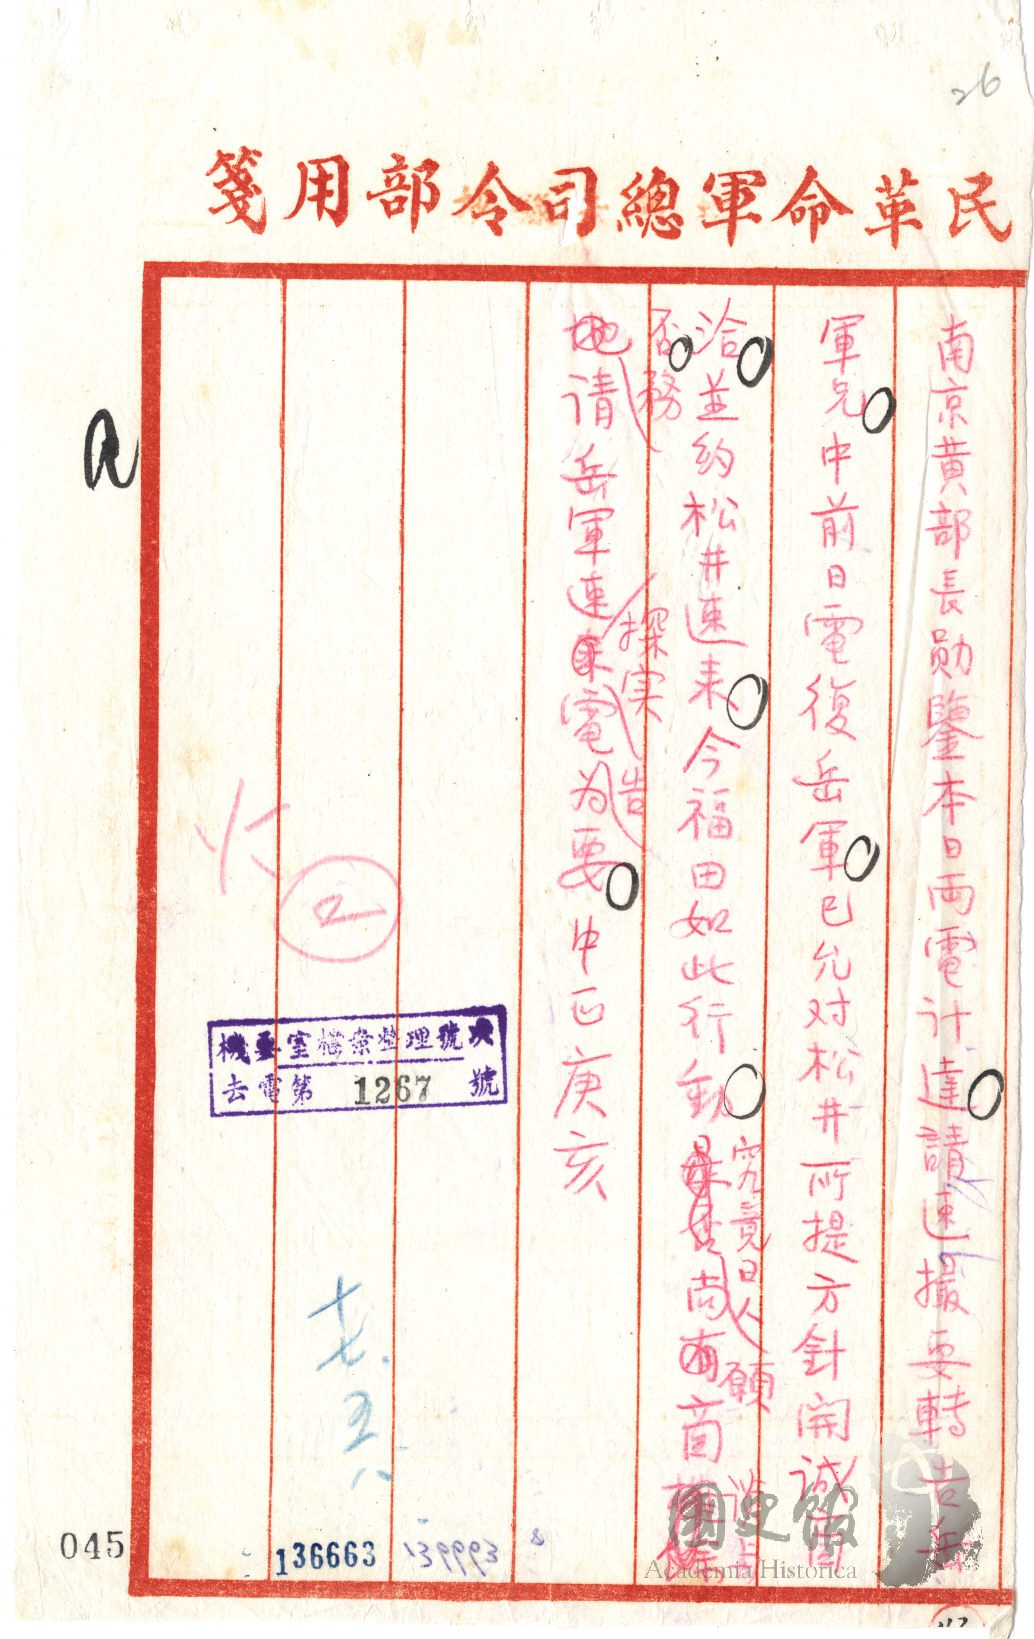 26
民革命軍總司令部用箋
南京黄部長勋鑒本日両電计達請速撮要轉告岳
軍兄中前日電復岳軍已允对松井所提方針開誠商
洽並約松井速来今福田如此行動究竟日人尚願商
否務
地请岳軍速探实電告为要中正庚亥
a
2
機要室檔案整理號次
去電第 1267 號
十七.五.八
136663
139993 8
045
國史館
Academia Historica